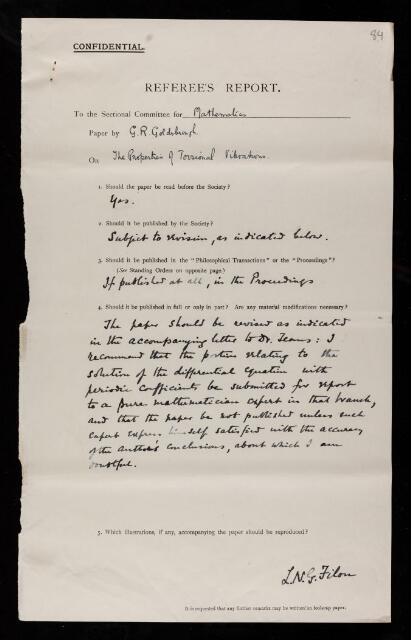 84
CONFIDENTIAL.
REFEREE'S REPORT.
To the Sectional Committee for Mathematics
Paper by G. R. Goldsbrough
On The Properties of Torsional Vibrations.
1. Should the paper be read before the Society?
Yes.
2. Should it be published by the Society?
Subject to revision, as indicated below.
3. Should it be published in the "Philosophical Transactions" or the "Proceedings"?
(See Standing Orders on opposite page.)
If published at all, in the Proceedings
4. Should it be published in full or only in part? Are any material modifications necessary?
The paper should be revised as indicated
in the accompanying letter to Dr. Jeans: I
recommend that the portion relating to the
solution of the differential equation with
periodic coefficients be submitted for report
to a pure mathematician expert in that branch,
and that the paper be not published unless such
expert express himself satisfied with the accuracy
of the author's conclusions, about which I am
doubtful.
5. Which illustrations, if any, accompanying the paper should be reproduced?
L.N.G. Filon
It is requested that any further remarks may be written on foolscap paper.